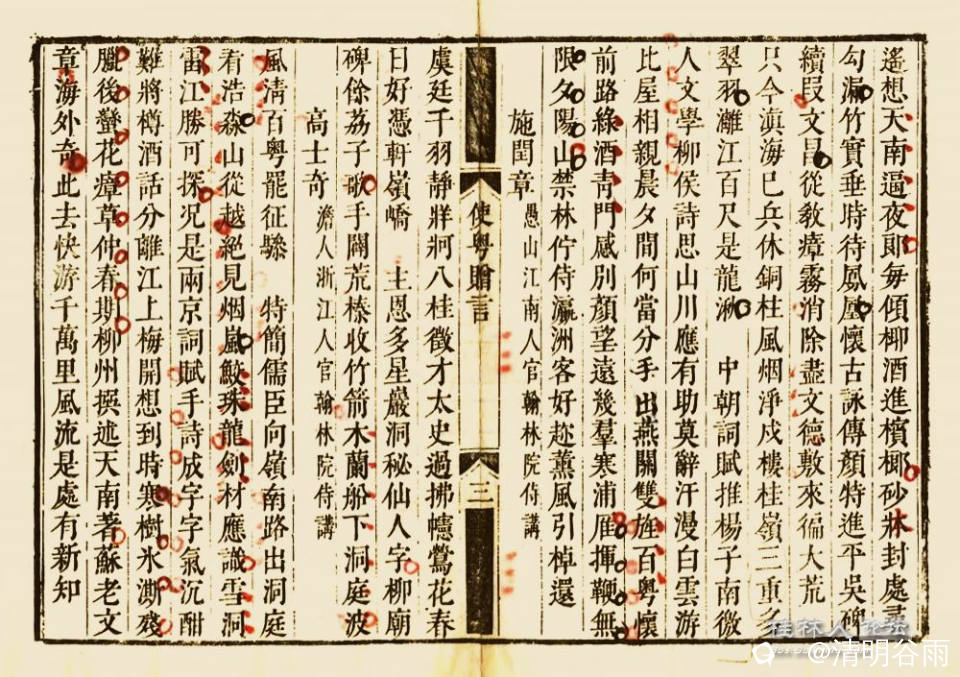 遙想天南逼夜郎每傾椰酒進檳榔砂牀封處尋
勾漏竹實垂時待鳳凰懷古詠傳顏特進平吳碑
續叚文昌從敎瘴霧消除盡文德敷來徧大荒
只今滇海已兵休銅柱風烟淨戍樓桂嶺三重多
翠羽灕江百尺是龍湫 中朝詞賦推楊子南徼
人文學柳侯詩思山川應有助莫辭汗漫白雲游
比屋相親晨夕間何當分手出燕關雙旌百粵懷
前路綠酒青門感別顏望遠幾羣寒浦雁揮鞭無
限夕陽山禁林佇侍瀛洲客好趂薰風引棹還
施閏章 愚山江南人官翰林院侍講
虞廷干羽靜牂牁八桂徵才太史過拂幰鶯花春
日好憑軒嶺嶠 主恩多星巖洞秘仙人字柳廟
碑餘荔子歌手闢荒榛收竹箭木蘭船下洞庭波
高士奇 澹人浙江人官翰林院侍講
風淸百粵罷征驂 特簡儒臣向嶺南路出洞庭
看浩淼山從越絕見烟嵐鮫珠龍劍材應識雪洞
雷江勝可探况是兩京詞賦手詩成字字氣沉酣
難將樽酒話分離江上梅開想到時寒樹氷澌殘
臘後蠻花瘴草仲春期柳州撰述天南著蘇老文
章海外奇此去快游千萬里風流是處有新知
使粵贈言
三
桂林人论坛
@清明谷雨